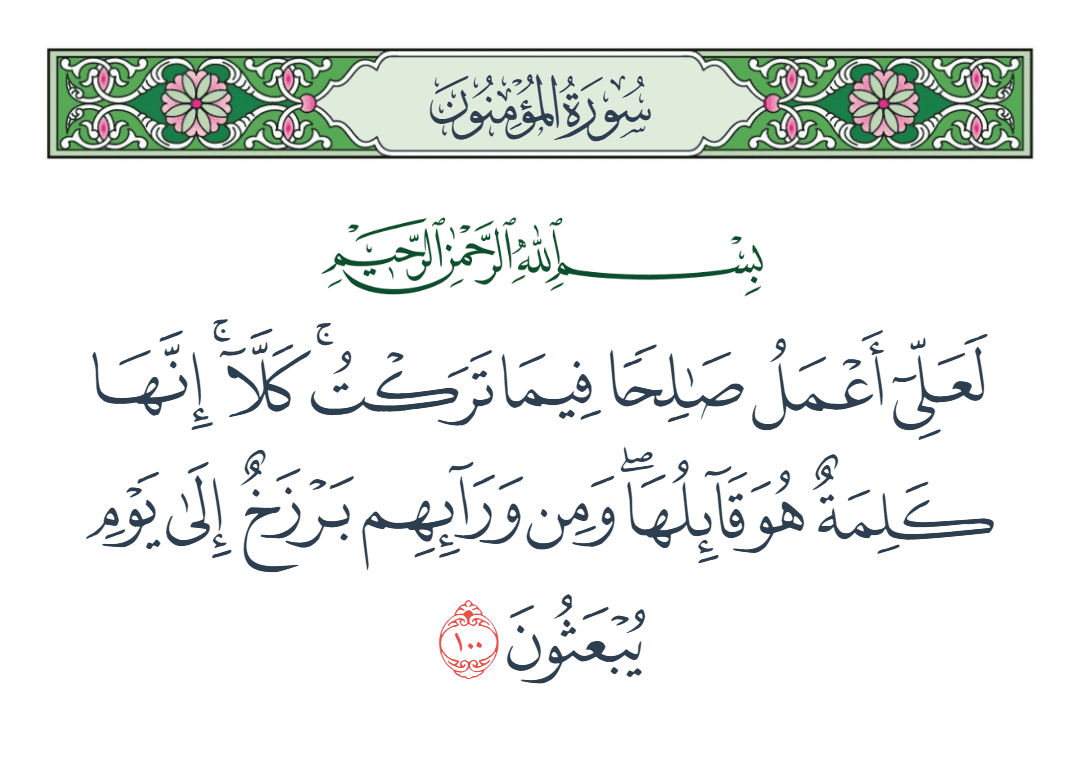 سُورَةُ المُؤْمِنُونَ
بِسْمِ ٱللَّهِ ٱلرَّحْمَٰنِ ٱلرَّحِيمِ
لَعَلِّىٓ أَعْمَلُ صَـٰلِحًا فِيمَا تَرَكْتُ ۚ كَلَّآ ۚ إِنَّهَا
كَلِمَةٌ هُوَ قَآئِلُهَا ۖ وَمِن وَرَآئِهِم بَرْزَخٌ إِلَىٰ يَوْمِ
يُبْعَثُونَ ١٠٠